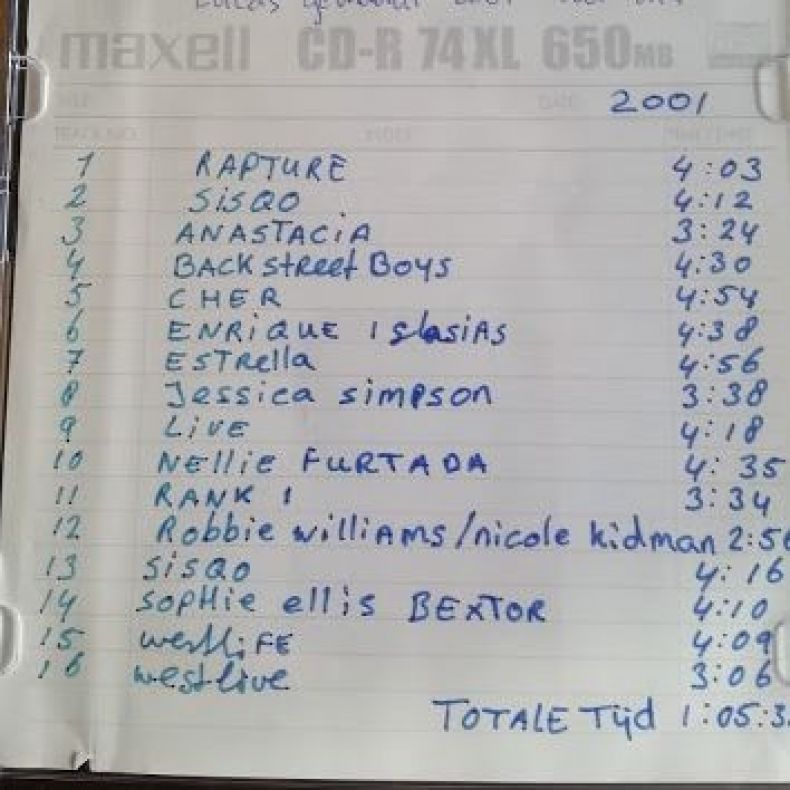 maxell CD-R 74XL 650MB
2001
1 RAPTURE 4:03
2 SISQO 4:12
3 ANASTACIA 3:24
4 BACKstreet Boys 4:30
5 CHER 4:54
6 ENRIQUE IglasiAs 4:38
7 ESTRella 4:56
8 Jessica simpson 3:38
9 LIVE 4:18
10 NEllie FURTADA 4:35
11 RANK 1 3:34
12 Robbie williAms/nicole kidman 2:56
13 SISQO 4:16
14 SOPHie ellis BEXTOR 4:10
15 westliFE 4:09
16 westlive 3:06
TOTALE Tijd 1:05:3